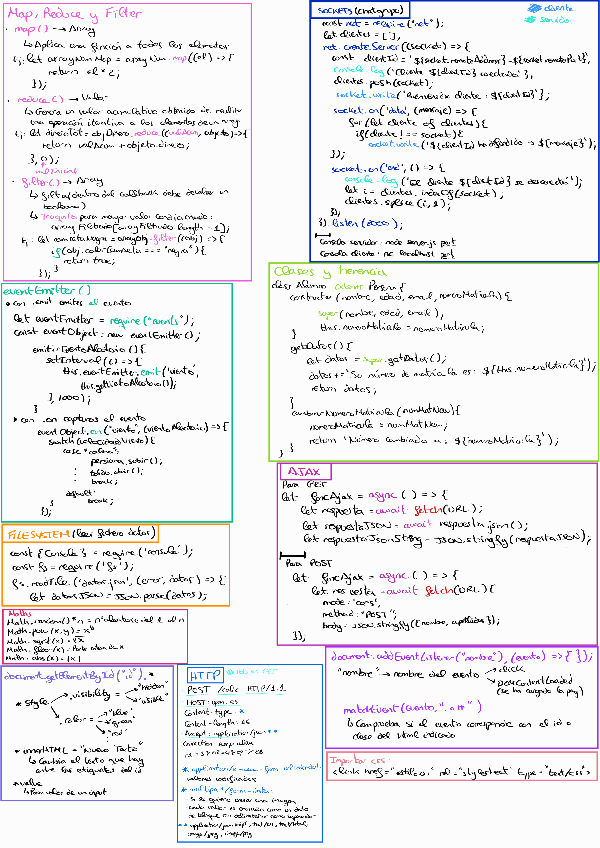 Map, Reduce y Filter
· map() → Array
↳ Aplica una función a todos los elementos
ej: let arrayNumMap = arrayNum.map((el) => {
return el * 2;
});
· reduce() → Valor
↳ Genera un valor acumulativo obtenido de realizar
una operación iterativa a los elementos de un array
ej: let dineroTot = objDinero.reduce((valorAcum, objeto) => {
return valAcum + objeto.dinero;
}, 0);
val inicial
· filter() → Array
↳ filter dentro del callback debe devolver un
booleano
array Filtrado[arrayFiltrado.length - 1];
if(obj.colorCamiseta === "negro"){
return true;
});
eventEmitter()
• con .emit emites el evento
let eventEmitter = require("events");
const eventObject = new eventEmitter();
emitirVientoAleatorio(){
setInterval(() => {
this.eventEmitter.emit("viento",
this.getVientoAleatorio());
}, 1000);
}
• con .on capturas el evento
eventObject.on("viento", (vientoAleatorio) => {
switch(velocidadViento){
case "calma":
persiana.subir();
toldo.abrir();
break;
default:
break;
}
});
FILESYSTEM (leer fichero datos)
const {Console} = require('console');
const fs = require('fs');
fs.readFile('datos.json', (error, datos) => {
let datosJSON = JSON.parse(datos);
Maths
Math.pow(x,y) = xʸ
Math.sqrt(x) = √x
Math.floor(x) = Parte entera de x
Math.abs(x) = |x|
document.getElementById("id").*
* style
visibility = "hidden"
"visible"
color = "blue"
"green"
"red"
* innerHTML = "Nuevo Texto"
↳ Cambia el texto que hay
entre las etiquetas del id
* value
↳ Para valor de un input
HTTP
POST /calc HTTP/1.1
HOST: upm.es
Content-type: *
Content-length: 66
Accept: application/json **
Connection: keep-alive
* multipart/form-data:
SOCKETS (chat grupo)
cliente
servidor
const net = require("net");
let clientes = [];
net.createServer((socket) => {
const clientId = `${socket.remoteAddress}-${socket.remotePort}`;
console.log(`Cliente ${clientId} conectado`);
clientes.push(socket);
socket.write(`Bienvenido cliente ${clientId}`);
socket.on('data', (mensaje) => {
for(let cliente of clientes){
if(cliente !== socket){
socket.write(`${clientId} ha difundido → ${mensaje}`);
});
socket.on('end', () => {
console.log(`El cliente ${clientId} se desconectó`);
let i = clientes.indexOf(socket);
clientes.splice(i, 1);
});
}).listen(2000);
Consola servidor: node server.js port
Consola cliente: nc localhost port
Clases y herencia
class Alumno extends Persona {
constructor (nombre, edad, email, numeroMatricula) {
super(nombre, edad, email);
this.numeroMatricula = numeroMatricula;
}
getDatos() {
let datos = super.getDatos();
datos += `Su número de matrícula es: ${this.numeroMatricula}`;
return datos;
}
cambiarNumeroMatricula(numMatNew){
numeroMatricula = numMatNew;
return `Número cambiado a: ${numeroMatricula}`;
}
AJAX
Para GET
let funcAjax = async () => {
let respuesta = await fetch(URL);
let respuestaJSON = await respuesta.json();
let respuestaJsonString = JSON.stringify(respuestaJSON);
Para POST
let funcAjax = async () => {
let respuesta = await fetch(URL){
mode: "cors",
method: "POST",
body: JSON.stringify({nombre, apellidos})
});
document.addEventListener("nombre", (evento) => { });
"nombre" → nombre del evento
click
DOMContentLoaded
(se ha cargado la pag)
matchEvent(evento, "...")
↳ Comprueba si el evento corresponde con el id o
clase del html indicado
Importar css:
<link href="estilo.css" rel="stylesheet" type="text/css">